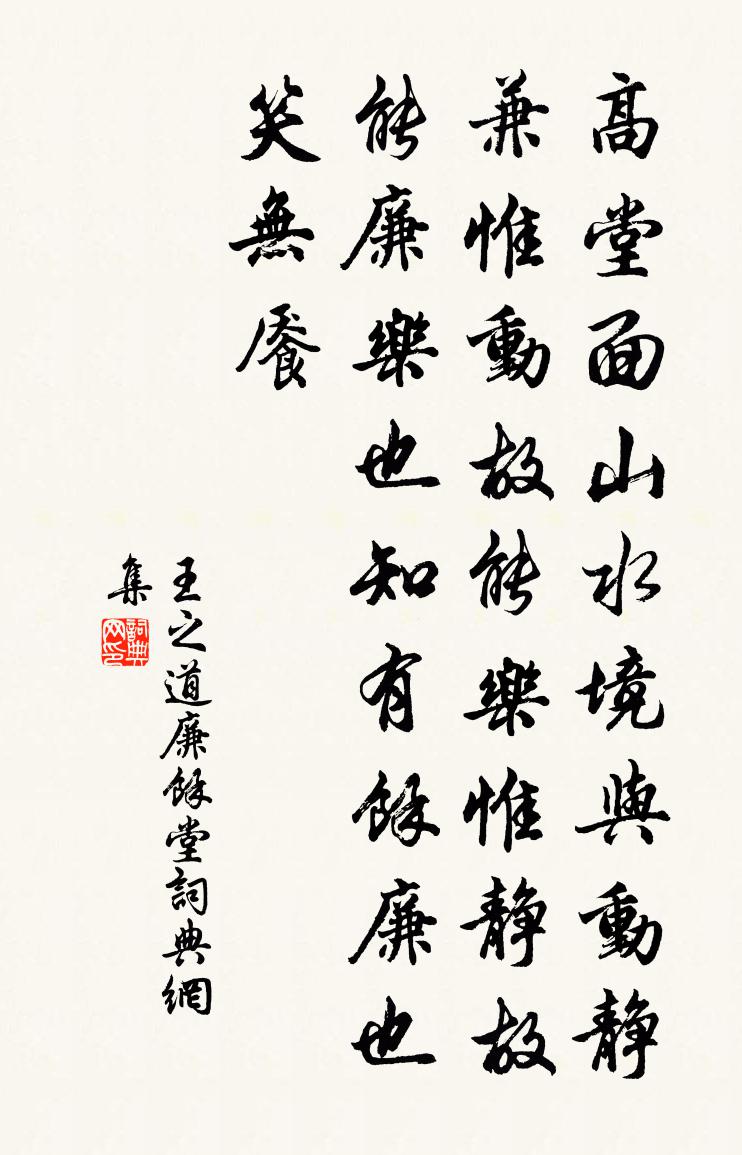 高堂面山水境與動靜
兼惟動故能樂惟靜故
能廉樂也知有餘廉也
笑無饜
王之道廉餘堂詞典網
集
詞典網印